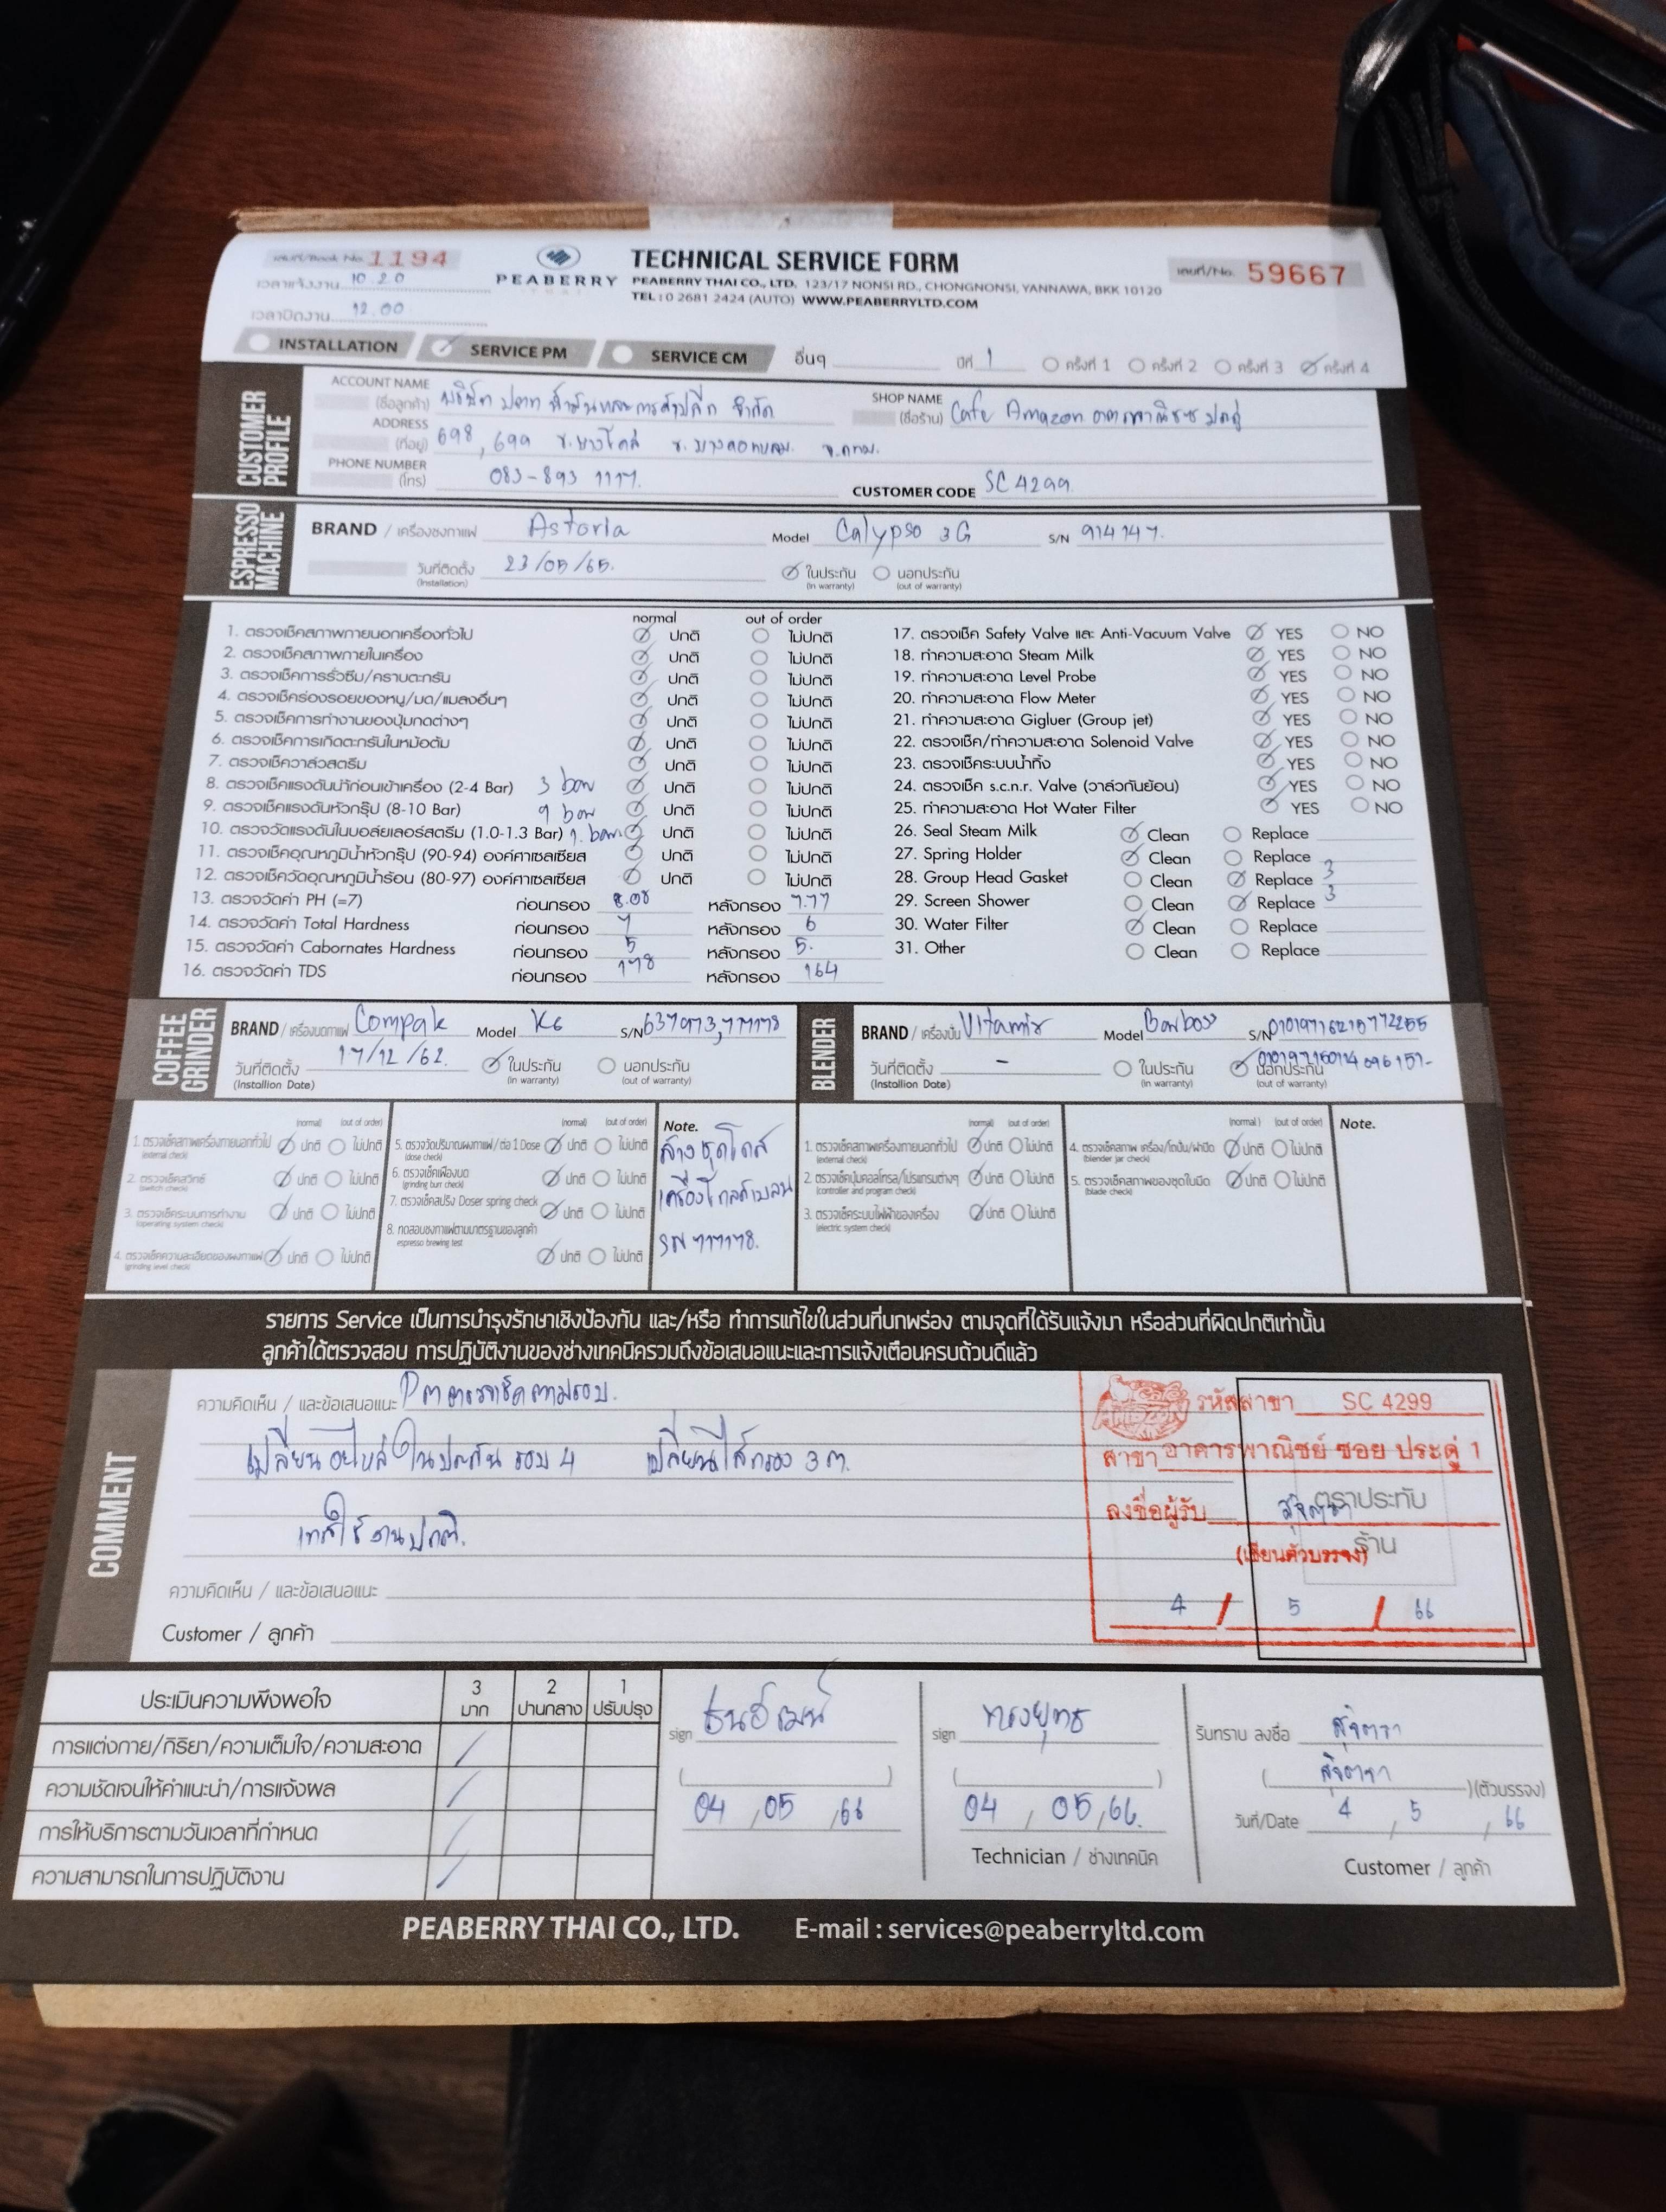 เลขที่/Book No. 1194
PEABERRY
TECHNICAL SERVICE FORM
PEABERRY THAI CO., LTD. 123/17 NONSI RD., CHONGNONSI, YANNAWA, BKK 10120
TEL : 0 2681 2424 (AUTO) WWW.PEABERRYLTD.COM
เลขที่/No. 59667
เวลาแจ้งงาน 10.20
เวลาปิดงาน 12.00
INSTALLATION SERVICE PM SERVICE CM อื่นๆ ปีที่ 1 ครั้งที่ 1 ครั้งที่ 2 ครั้งที่ 3 ครั้งที่ 4
CUSTOMER PROFILE
ACCOUNT NAME (ชื่อลูกค้า) บริษัท ปตท น้ำมันและการค้าปลีก จำกัด
SHOP NAME (ชื่อร้าน) Cafe Amazon
ADDRESS (ที่อยู่) 698, 699
PHONE NUMBER (โทร) 083-893 1117.
CUSTOMER CODE SC 4299.
ESPRESSO MACHINE
BRAND / เครื่องชงกาแฟ Astoria Model Calypso 3G S/N 914147.
วันที่ติดตั้ง (Installation) 23/05/65. ในประกัน (in warranty) นอกประกัน (out of warranty)
normal out of order
1. ตรวจเช็คสภาพภายนอกเครื่องทั่วไป ปกติ ไม่ปกติ
2. ตรวจเช็คสภาพภายในเครื่อง ปกติ ไม่ปกติ
3. ตรวจเช็คการรั่วซึม/คราบตะกรัน ปกติ ไม่ปกติ
4. ตรวจเช็คร่องรอยของหนู/มด/แมลงอื่นๆ ปกติ ไม่ปกติ
5. ตรวจเช็คการทำงานของปุ่มกดต่างๆ ปกติ ไม่ปกติ
6. ตรวจเช็คการเกิดตะกรันในหม้อต้ม ปกติ ไม่ปกติ
7. ตรวจเช็ควาล์วสตรีม ปกติ ไม่ปกติ
8. ตรวจเช็คแรงดันน้ำก่อนเข้าเครื่อง (2-4 Bar) 3 bar ปกติ ไม่ปกติ
9. ตรวจเช็คแรงดันหัวกรุ๊ป (8-10 Bar) 9 bar ปกติ ไม่ปกติ
10. ตรวจวัดแรงดันในบอล์ยเลอร์สตรีม (1.0-1.3 Bar) 1. bar ปกติ ไม่ปกติ
11. ตรวจเช็คอุณหภูมิน้ำหัวกรุ๊ป (90-94) องค์ศาเซลเซียส ปกติ ไม่ปกติ
12. ตรวจเช็ควัดอุณหภูมิน้ำร้อน (80-97) องค์ศาเซลเซียส ปกติ ไม่ปกติ
13. ตรวจวัดค่า PH (=7) ก่อนกรอง 8.08 หลังกรอง 7.77
14. ตรวจวัดค่า Total Hardness ก่อนกรอง 7 หลังกรอง 6
15. ตรวจวัดค่า Cabornates Hardness ก่อนกรอง 5 หลังกรอง 5.
16. ตรวจวัดค่า TDS ก่อนกรอง 178 หลังกรอง 164
17. ตรวจเช็ค Safety Valve และ Anti-Vacuum Valve YES NO
18. ทำความสะอาด Steam Milk YES NO
19. ทำความสะอาด Level Probe YES NO
20. ทำความสะอาด Flow Meter YES NO
21. ทำความสะอาด Gigluer (Group jet) YES NO
22. ตรวจเช็ค/ทำความสะอาด Solenoid Valve YES NO
23. ตรวจเช็คระบบน้ำทิ้ง YES NO
24. ตรวจเช็ค s.c.n.r. Valve (วาล์วกันย้อน) YES NO
25. ทำความสะอาด Hot Water Filter YES NO
26. Seal Steam Milk Clean Replace
27. Spring Holder Clean Replace
28. Group Head Gasket Clean Replace 3
29. Screen Shower Clean Replace 3
30. Water Filter Clean Replace
31. Other Clean Replace
COFFEE GRINDER
BRAND / เครื่องบดกาแฟ Compak Model K6 S/N 637973,777178
วันที่ติดตั้ง (Installion Date) 17/12/62. ในประกัน (in warranty) นอกประกัน (out of warranty)
BLENDER
BRAND / เครื่องปั่น Vitamix Model Barboss S/N
วันที่ติดตั้ง (Installion Date) - ในประกัน (in warranty) นอกประกัน (out of warranty)
(normal) (out of order)
1. ตรวจเช็คสภาพเครื่องภายนอกทั่วไป (external check) ปกติ ไม่ปกติ
2. ตรวจเช็คสวิทซ์ (switch check) ปกติ ไม่ปกติ
3. ตรวจเช็คระบบการทำงาน (operating system check) ปกติ ไม่ปกติ
4. ตรวจเช็คความละเอียดของผงกาแฟ (grinding level check) ปกติ ไม่ปกติ
(normal) (out of order)
5. ตรวจวัดปริมาณผงกาแฟ/ต่อ 1 Dose (dose check) ปกติ ไม่ปกติ
6. ตรวจเช็คเฟืองบด (grinding burr check) ปกติ ไม่ปกติ
7. ตรวจเช็คสปริง Doser spring check ปกติ ไม่ปกติ
8. ทดสอบชงกาแฟตามมาตรฐานของลูกค้า espresso brewing test ปกติ ไม่ปกติ
Note.
ล้างชุดโดส
SN 777178.
(normal) (out of order)
1. ตรวจเช็คสภาพเครื่องภายนอกทั่วไป (external check) ปกติ ไม่ปกติ
2. ตรวจเช็คปุ่มคอลโทรล/โปรแกรมต่างๆ (controller and program check) ปกติ ไม่ปกติ
3. ตรวจเช็คระบบไฟฟ้าของเครื่อง (electric system check) ปกติ ไม่ปกติ
(normal) (out of order)
4. ตรวจเช็คสภาพ เครื่อง/โถปั่น/ฝาปิด (blender jar check) ปกติ ไม่ปกติ
5. ตรวจเช็คสภาพของชุดใบมีด (blade check) ปกติ ไม่ปกติ
Note.
รายการ Service เป็นการบำรุงรักษาเชิงป้องกัน และ/หรือ ทำการแก้ไขในส่วนที่บกพร่อง ตามจุดที่ได้รับแจ้งมา หรือส่วนที่ผิดปกติเท่านั้น
ลูกค้าได้ตรวจสอบ การปฏิบัติงานของช่างเทคนิครวมถึงข้อเสนอแนะและการแจ้งเตือนครบถ้วนดีแล้ว
COMMENT
ความคิดเห็น / และข้อเสนอแนะ PM ตรวจเช็คตามรอบ.
เปลี่ยนอะไหล่ในประกัน รอบ 4 เปลี่ยนไส้กรอง 3 ต.
เทสใช้งานปกติ.
ความคิดเห็น / และข้อเสนอแนะ
Customer / ลูกค้า
รหัสสาขา SC 4299
สาขา อาคารพาณิชย์ ซอย ประดู่ 1
ลงชื่อผู้รับ สุจิตรา
(เขียนตัวบรรจง)
ตราประทับ
ร้าน
4 / 5 / 66
ประเมินความพึงพอใจ 3 มาก 2 ปานกลาง 1 ปรับปรุง
การแต่งกาย/กิริยา/ความเต็มใจ/ความสะอาด
ความชัดเจนให้คำแนะนำ/การแจ้งผล
การให้บริการตามวันเวลาที่กำหนด
ความสามารถในการปฏิบัติงาน
sign ธนวัฒน์
04 / 05 / 66
sign ทรงยุทธ
04 / 05 / 66.
Technician / ช่างเทคนิค
รับทราบ ลงชื่อ สุจิตรา
(สุจิตรา) (ตัวบรรจง)
วันที่/Date 4 / 5 / 66
Customer / ลูกค้า
PEABERRY THAI CO., LTD. E-mail : services@peaberryltd.com